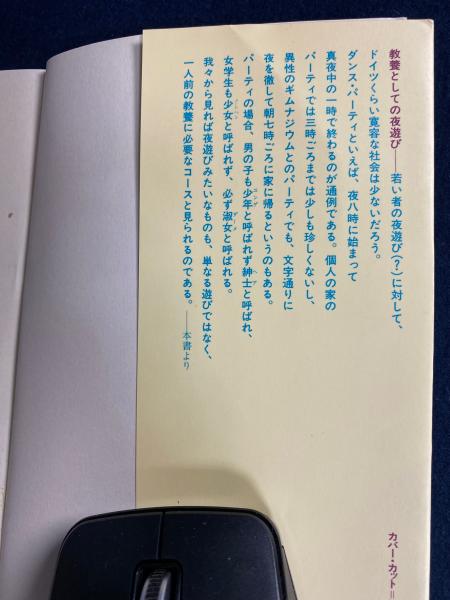 教養としての夜遊び——若い者の夜遊び(?)に対して、
ドイツくらい寛容な社会は少ないだろう。
ダンス・パーティといえば、夜八時に始まって
真夜中の一時で終わるのが通例である。個人の家の
パーティでは三時ごろまでは少しも珍しくないし、
異性のギムナジウムとのパーティでも、文字通りに
夜を徹して朝七時ごろに家に帰るというのもある。
パーティの場合、男の子も少年と呼ばれず紳士と呼ばれ、
女学生も少女と呼ばれず、必ず淑女と呼ばれる。
我々から見れば夜遊びみたいなものも、単なる遊びではなく、
一人前の教養に必要なコースと見られるのである。——本書より
カバー・カット=